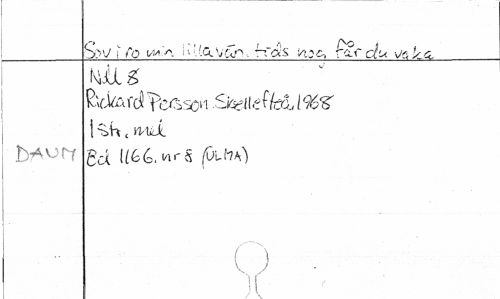 Sov i ro min lilla vän. tids nog får du vaka
Nll 8
Rickard Persson. Skellefteå, 1968
1 str. mel
DAUM Bd 1166. nr 8 (ULMA)